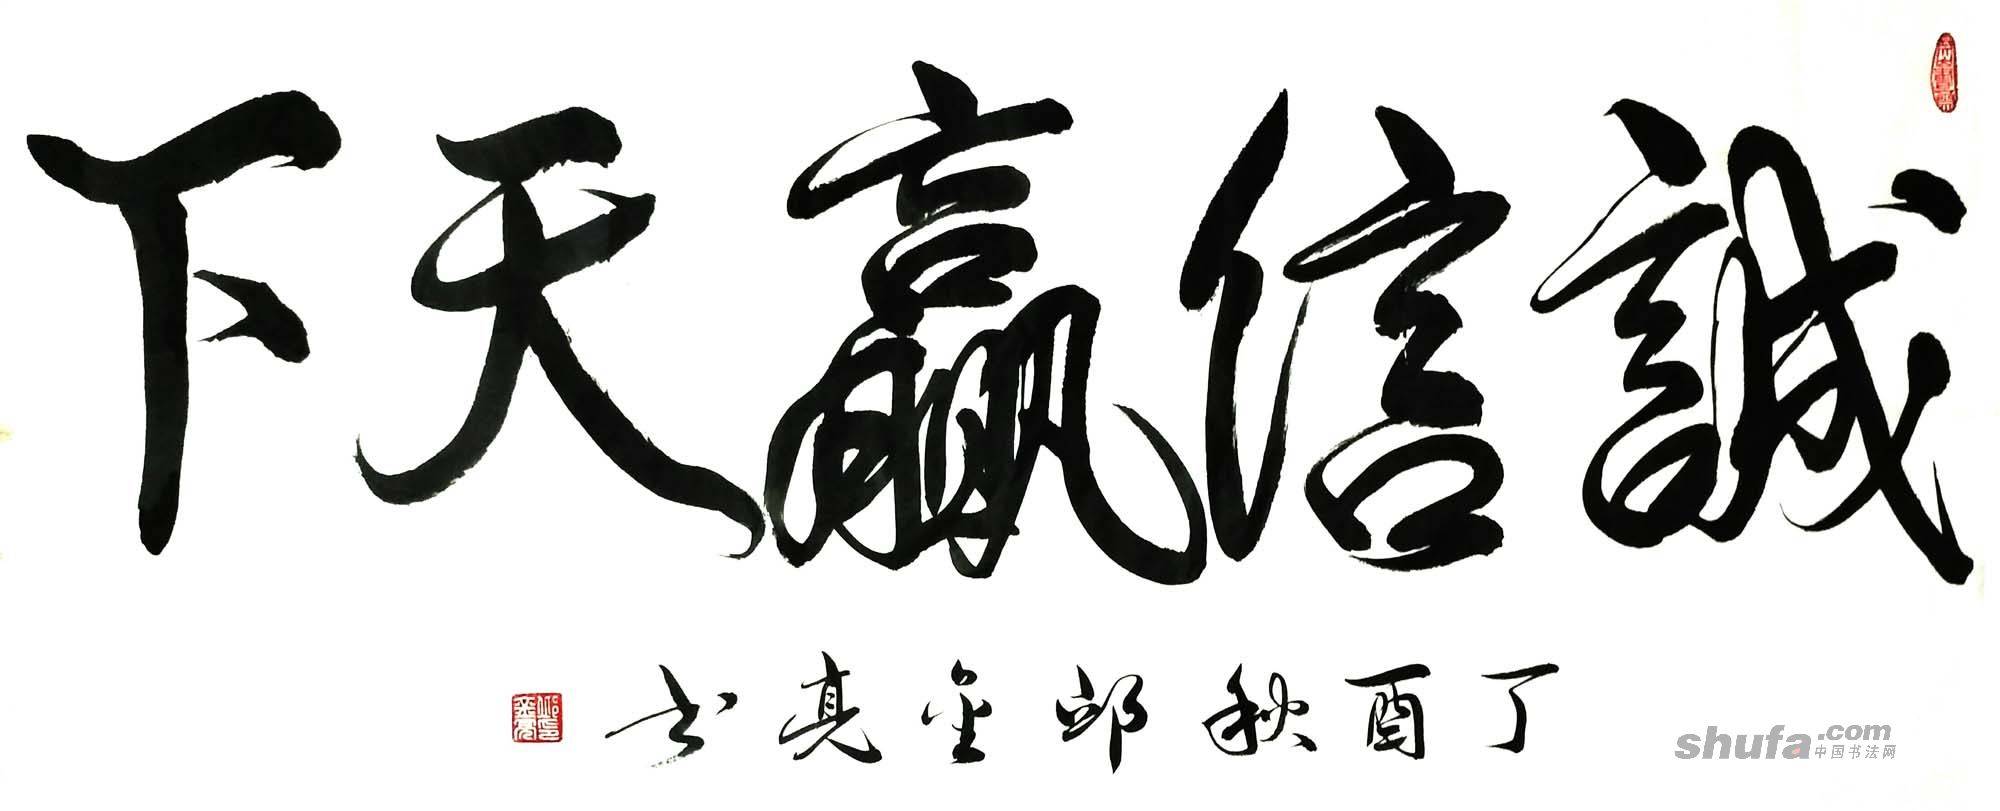 誠信贏天下
丁酉秋邱金亮书
shufa.com
中国书法网